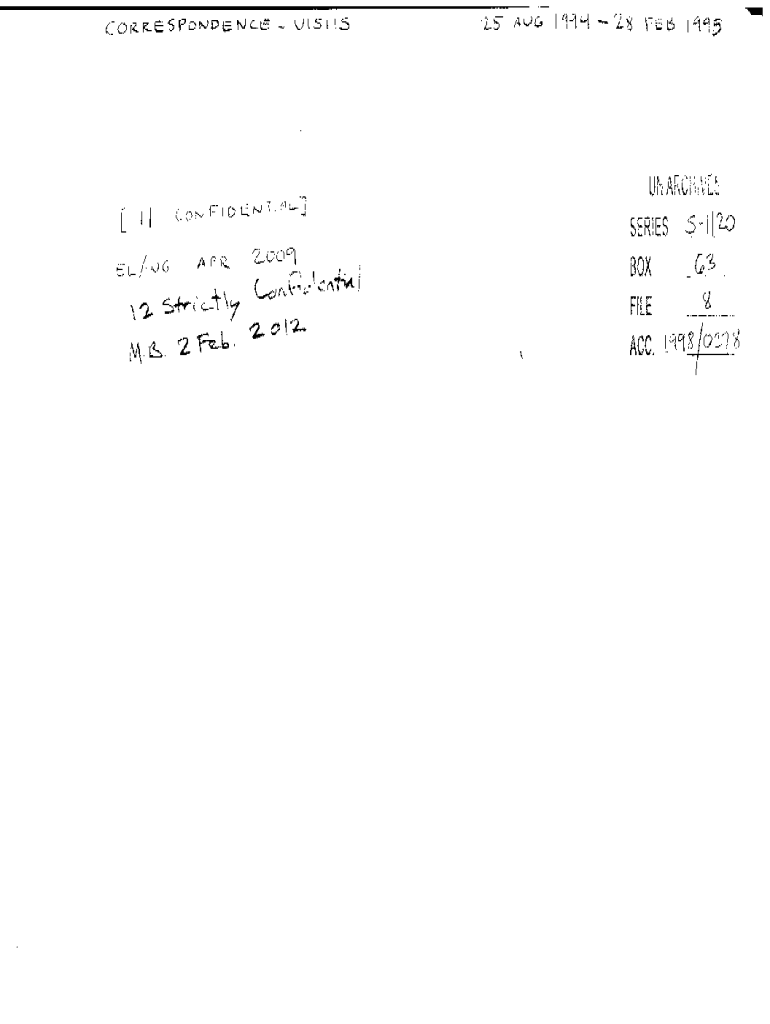 CORRESPONDENCE - VISITS 25 AUG 1994 - 28 FEB 1995
UN ARCHIVES
[ 11 CONFIDENTIAL]
SERIES S-1120
EL/NG APR 2009
BOX 63
12 Strictly Confidential
FILE 8
M.B. 2 Feb. 2012
ACC. 1998/0278